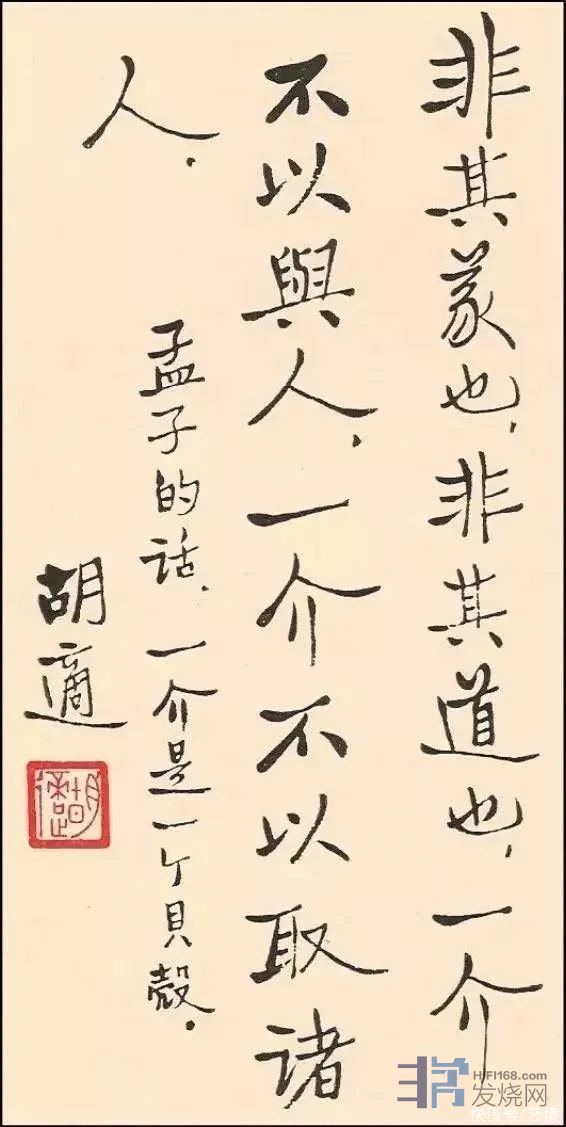 非其义也,非其道也,一介
不以與人,一介不以取诸
人.
孟子的话.一介是一个貝殻.
胡適
胡適
HIFI168.com
发烧网